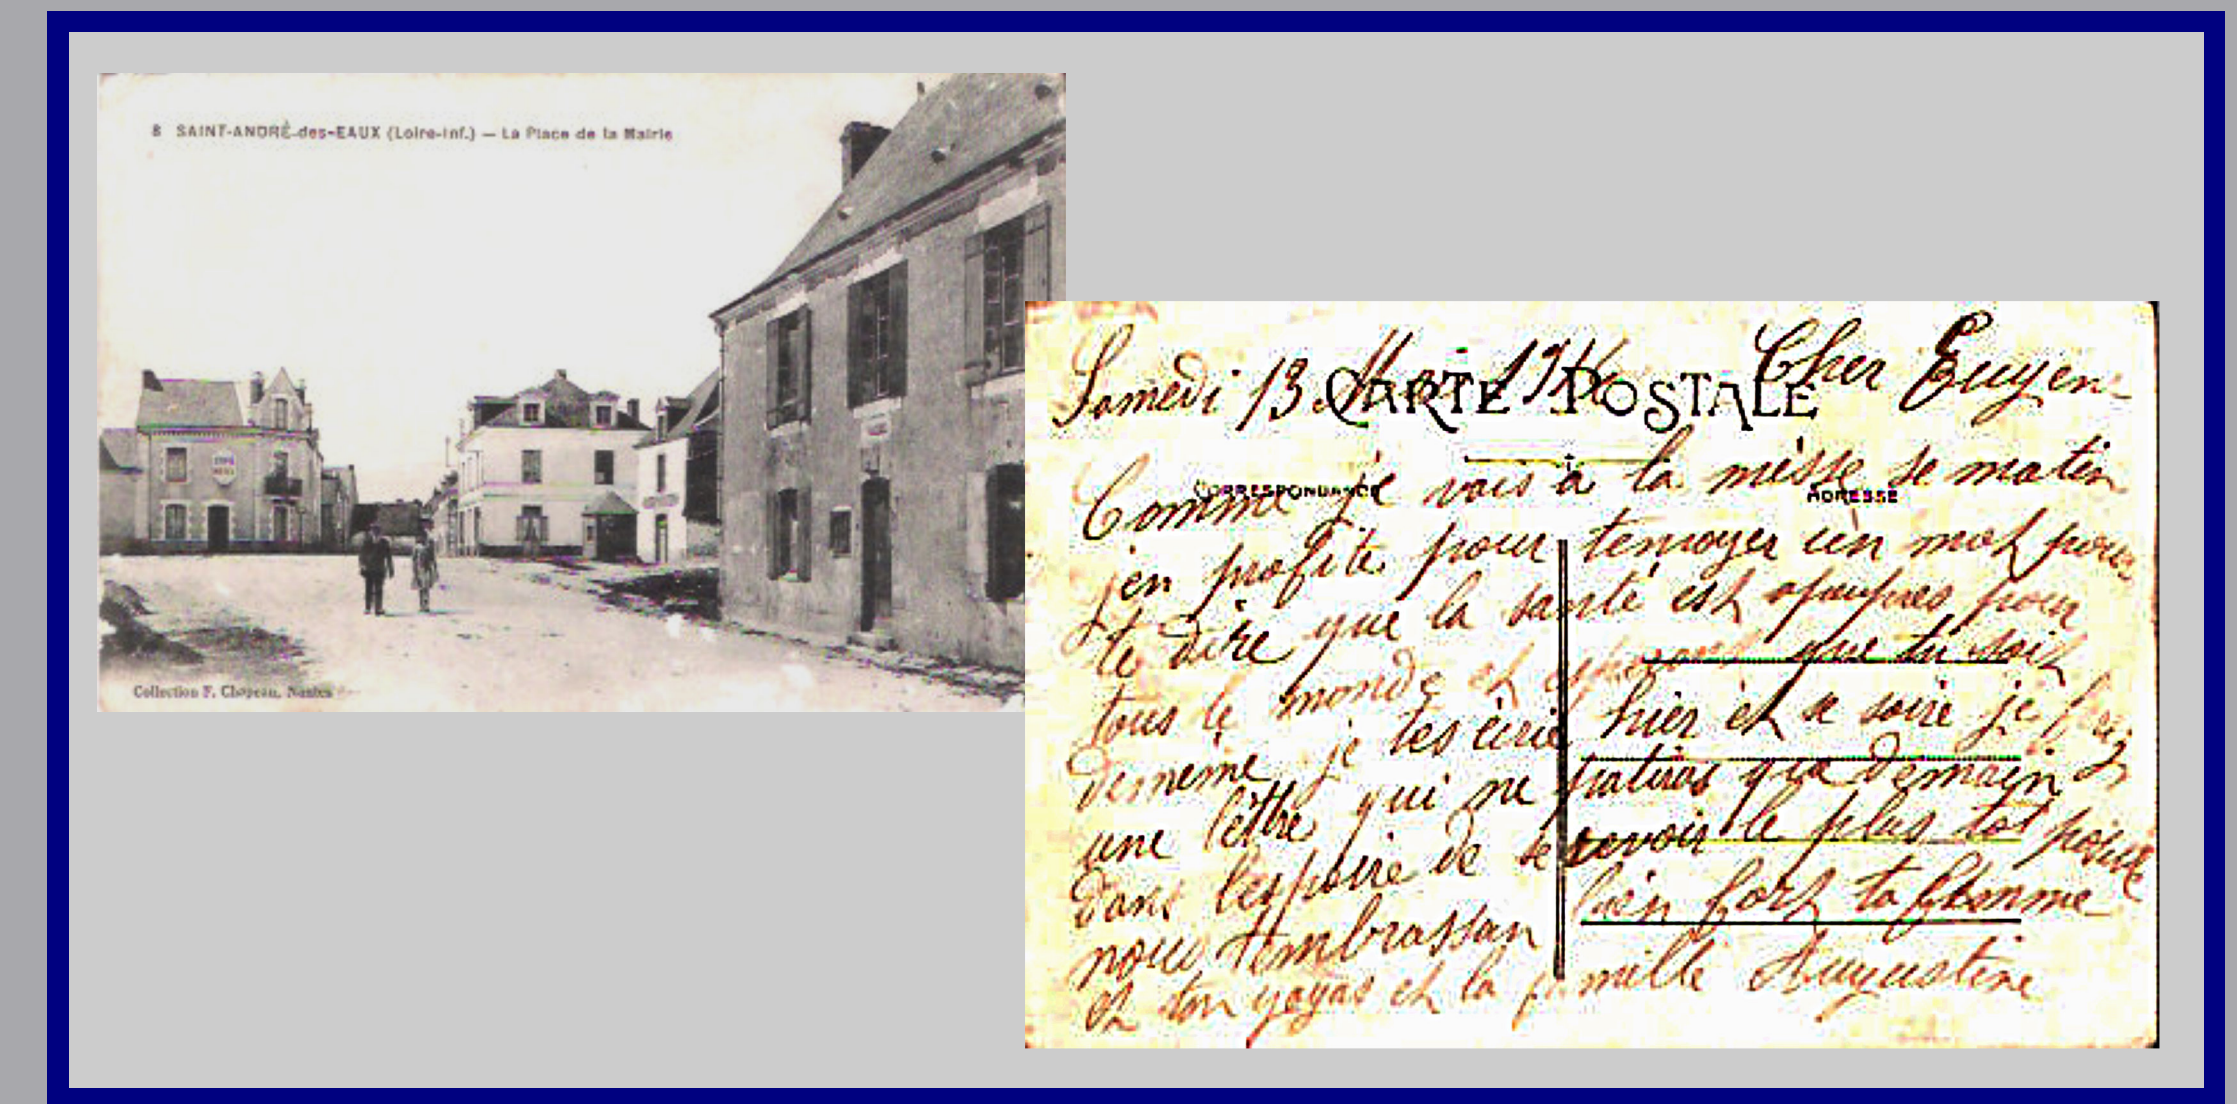 8 SAINT-ANDRÉ-des-EAUX (Loire-Inf.) — La Place de la Mairie
Collection F. Chapeau, Nantes
CARTE POSTALE
CORRESPONDANCE
ADRESSE
Samedi 13 Cher Eugene
Comme je vais a la mèsse se matin
j'en profite pour tenvoyer un mot pour
te dire que la santé est apeupres pour
tous le monde et esperant que tu soit
dememe je tes écrie hier et se soire je
une lettre qui ne partiras qua demain
dans l'espoire de se revoir le plus tot posible
nous t'embrassan bien fort ta femme
et ton et la famille Augustine